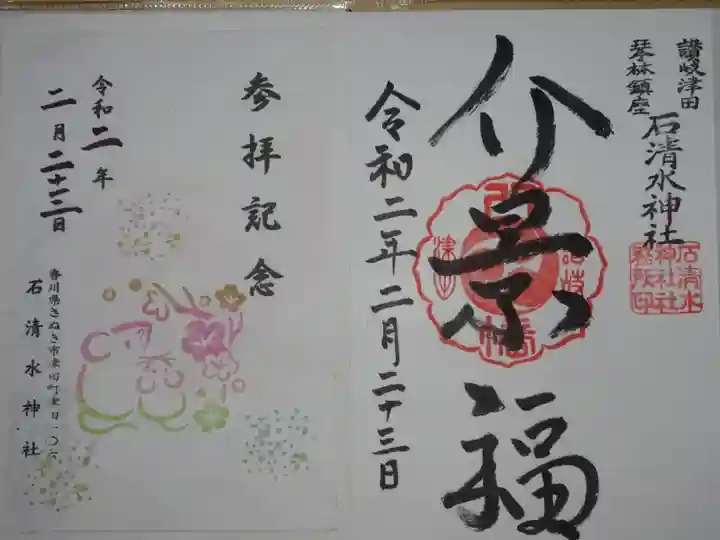 讃岐津田
琴林鎮座
石清水神社
石清水
神社社
務所印
介景福
令和二年二月二十三日
参拝記念
令和二年
二月二十三日
香川県さぬき市津田町
石清水神社